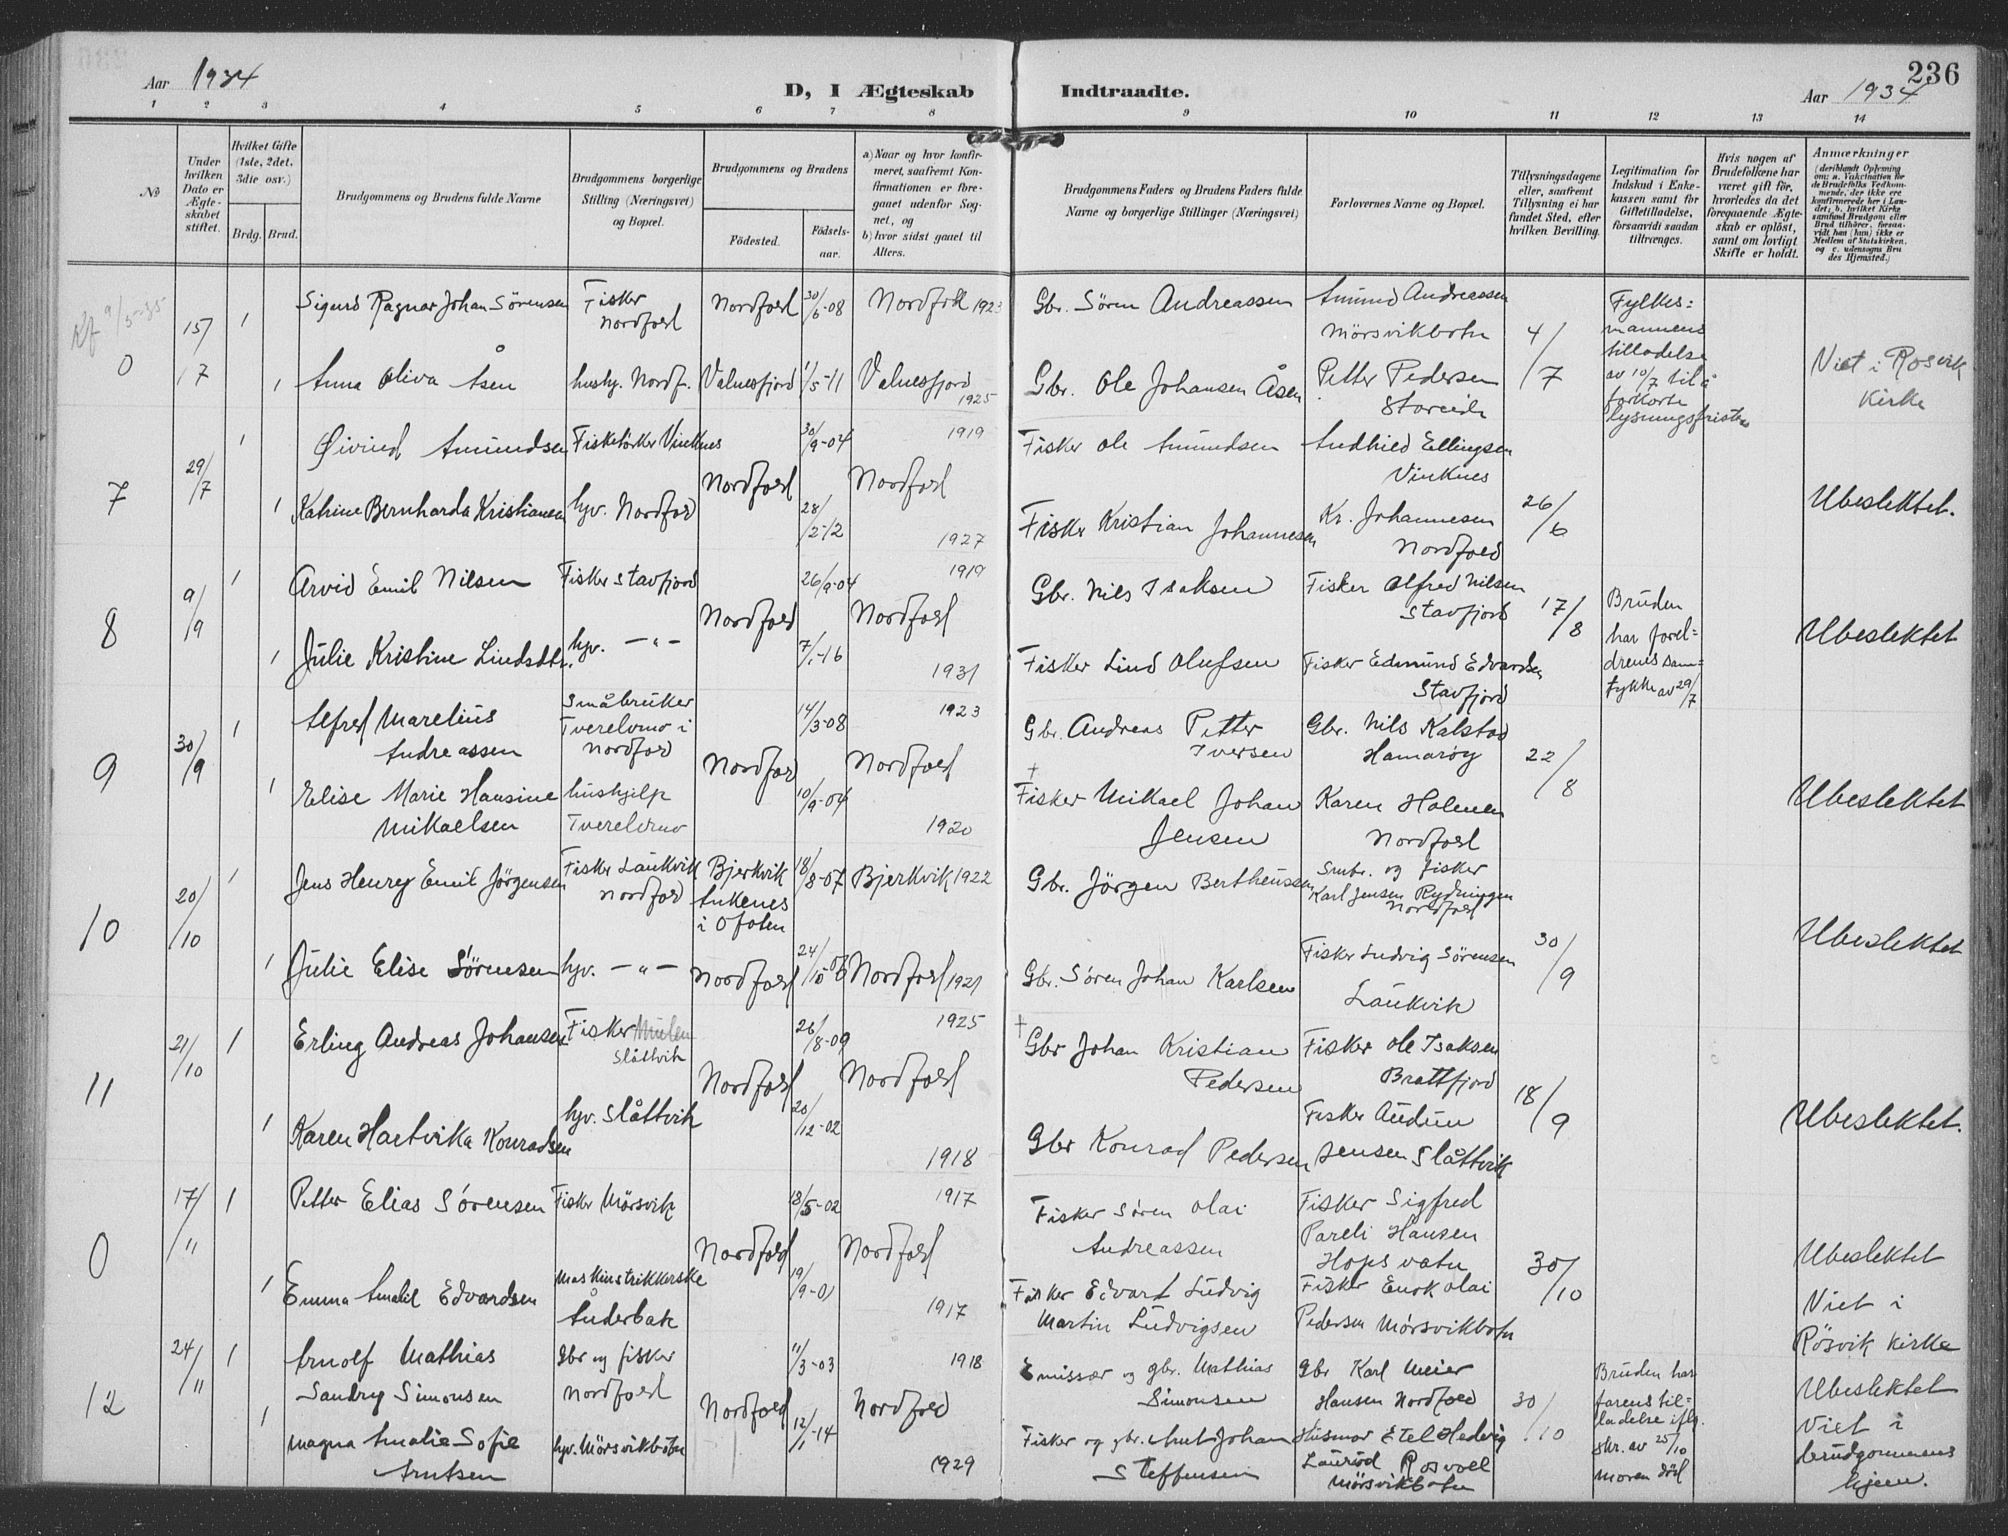 Aar 1934
D, I Ægteskab Indtraadte.
Aar 1934
236
1 2 3 4 5 6 7 8 9 10 11 12 13 14
No
Under hvilken Dato er Ægteskabet stiftet.
Hvilket Gifte (1ste, 2det, 3die osv.)
Brdg. Brud.
Brudgommens og Brudens fulde Navne
Brudgommens borgerlige Stilling (Næringsvei) og Bopæl.
Brudgommens og Brudens
Fødested.
Fødselsaar.
a) Naar og hvor konfirmeret, saafremt Konfirmationen er foregaaet udenfor Sognet, og
b) hvor sidst gaaet til Alters.
Brudgommens Faders og Brudens Faders fulde Navne og borgerlige Stillinger (Næringsvei)
Forlovernes Navne og Bopæl.
Tillysningsdagene eller, saafremt Tillysning ei har fundet Sted, efter hvilken Bevilling.
Legitimation for Indskud i Enkekassen samt for Giftetilladelse, forsaavidt saadan tiltrænges.
Hvis nogen af Brudefolkene har været gift før, hvorledes da det foregaaende Ægteskab er opløst, samt om lovligt Skifte er holdt.
Anmærkninger
(deriblandt Oplysning om: a. Vaksination for de Brudefolks Vedkommende, der ikke ere konfirmerede her i Landet; b. hvilket Kirkesamfund Brudgom eller Brud tilhører, forsaavidt han (hun) ikke er Medlem af Statskirken, og c. udensogns Brudes Hjemsted.)
0 15/7 1 Sigurd Ragnar Johan Sørensen Fisker Nordfold Nordfold 30/6-08 Nordfold 1923 Gbr. Søren Andreassen Amund Andreassen Mörsvikbotn 4/7 Fylkesmannens tilladelse av 10/7 til å forkorte lysningsfristen
1 Anna Oliva Åsen hushj. Nordf. Valnesfjord 1/5-11 Valnesfjord 1925 Gbr. Ole Johansen Åsen Petter Pedersen Storeide Viet i Rosvik Kirke
7 29/7 1 Øivind Amundsen Fisketörker Vinknes Nordfold 30/9-04 1919 Nordfold Fisker Ole Amundsen Ellingsen Vinknes 26/6 Ubeslektet.
1 Katrine Bernharda Kristiansen hjv. Nordfold 28/12-12 1927 Fisker Kristian Johannesen Kr. Johannesen Nordfold
8 9/9 1 Arvid Emil Nilsen Fisker Stavfjord Nordfold 26/9-04 1919 Nordfold Gbr. Nils Isaksen Fisker Alfred Nilsen Stavfjord 17/8 Bruden har foreldrenes samtykke av 29/7 Ubeslektet
1 Julie Kristine hjv. —"— 7/1-16 1931 Fisker Lind Olufsen Fisker Edmund Edvardsen Stavfjord
9 30/9 1 Alfred Marelius Andreassen Småbruker Tverelvmo i Nordfold Nordfold 14/3-08 1923 Nordfold Gbr. Andreas Petter Iversen Gbr. Nils Kalstad Hamarøy 22/8 Ubeslektet
1 Elise Marie Hansine Mikaelsen hushjelp Tverelvmo 10/9-04 1920 † Fisker Mikael Johan Jensen Karen Holmen Nordfold
10 20/10 1 Jens Henry Emil Jörgensen Fisker Laukvik Nordfold Bjerkvik Ankenes i Ofoten 18/8-07 Bjerkvik 1922 Gbr. Jörgen Bertheussen Smbr. og fisker Karl Jensen Rydningen Nordfold 30/9 Ubeslektet
1 Julie Elise Sörensen hjv. —"— Nordfold 24/10-06 Nordfold 1921 Gbr. Søren Johan Karlsen Fisker Ludvig Sörensen Laukvik
11 21/10 1 Erling Andreas Johansen Fisker Slåttvik Nordfold 26/8-09 1925 Nordfold † Gbr Johan Kristian Pedersen Fisker Ole Isaksen Brattfjord 18/9 Ubeslektet.
1 Karen Hartvika Konradsen hjv. Slåttvik 20/12-02 1918 Gbr Konrad Pedersen Fisker Audun Jensen Slåttvik
0 17/11 1 Petter Elias Sörensen Fisker Mörsvik Nordfold 18/5-02 1917 Nordfold Fisker Søren Olai Andreassen Fisker Sigfred Pareli Hansen Hopsvatn 30/10 Ubeslektet Viet i Røsvik Kirke
1 Emma Amalie Edvardsen Maskinstrikkerske Anderbak 19/9-01 1917 Fisker Edvart Ludvig Martin Ludvigsen Fisker Enok Olai Pedersen Mörsvikbotn
12 24/11 1 Arnolf Mathias Sandry Simonsen Gbr og fisker Nordfold Nordfold 11/3-03 1918 Nordfold Emissær og gbr. Mathias Simonsen Gbr Karl Meier Hansen Nordfold 30/10 Bruden har farens tilladelse iflg. skr. av 25/10 moren död Ubeslektet Viet i brudgommens hjem.
1 Magna Amalie Sofie Arntsen hjv. Mörsvikbotn 12/1-14 1929 Fisker og gbr. Arnt Johan Steffensen Husmor Etel Hedvig Rosvoll Mörsvikbotn
Kf 9/5-35